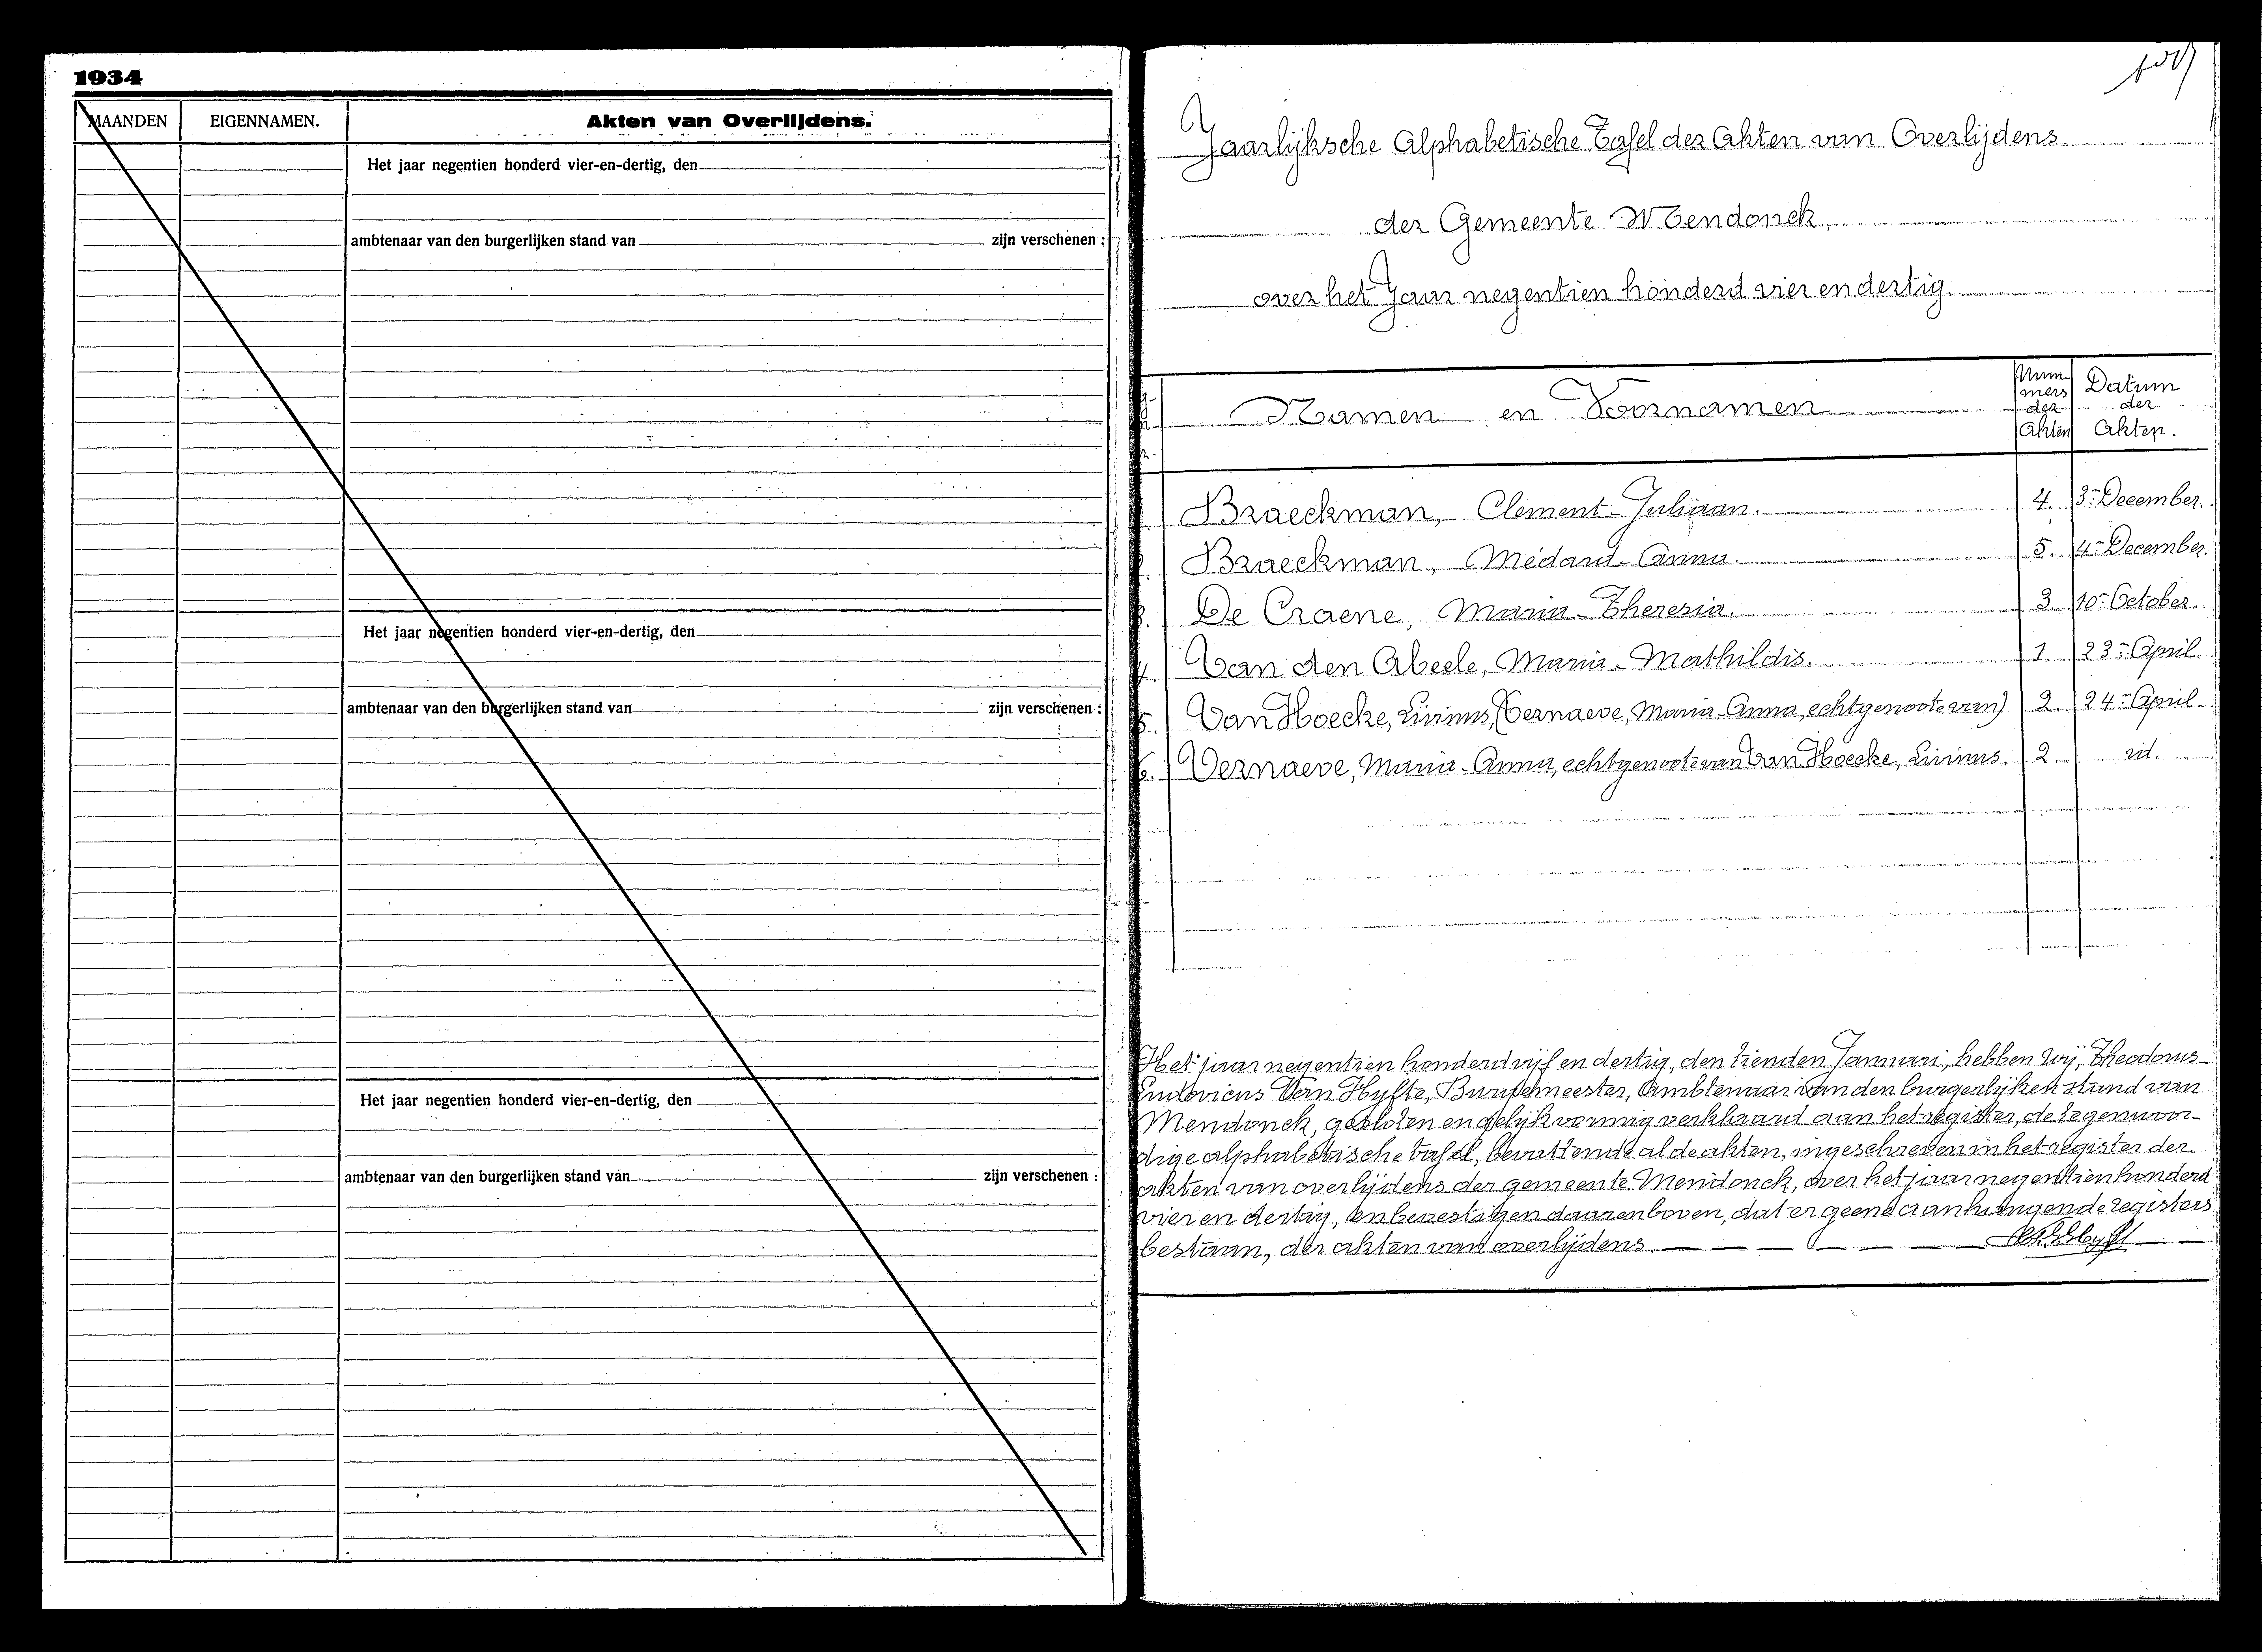 1934
MAANDEN EIGENNAMEN. Akten van Overlijdens.
Het jaar negentien honderd vier-en-dertig, den
ambtenaar van den burgerlijken stand van zijn verschenen :
Het jaar negentien honderd vier-en-dertig, den
ambtenaar van den burgerlijken stand van zijn verschenen :
Het jaar negentien honderd vier-en-dertig, den
ambtenaar van den burgerlijken stand van zijn verschenen :
Jaarlijksche Alphabetische Tafel der Akten van Overlijdens
der Gemeente Mendonck,
over het Jaar negentien honderd vier en dertig.
Namen en Voornamen Nummers der Akten Datum der Akten.
Braeckman, Clement-Juliaan. 4. 3n December.
Braeckman, Médard-Anna. 5. 4n December.
3. De Craene, Maria-Theresia. 3 10n October.
4. Van den Abeele, Maria-Mathildis. 1. 23n April.
5. Van Hoecke, Livinus, (Vernaeve, Maria-Anna, echtgenoote van) 2. 24n April.
6. Vernaeve, Maria-Anna, echtgenoote van Van Hoecke, Livinus. 2. id.
Het jaar negentien honderd vijf en dertig, den tienden Januari, hebben wij, Theodorus-
Ludovicus Van Hyfte, Burgemeester, Ambtenaar van den burgerlijken stand van
Mendonck, gesloten en gelijkvormig verklaard aan het register, de tegenwoor-
dige alphabetische tafel, bevattende al de akten, ingeschreven in het register der
akten van overlijdens der gemeente Mendonck, over het jaar negentien honderd
vier en dertig, en bevestigen daarenboven, dat er geene aanhangende registers
bestaan, der akten van overlijdens